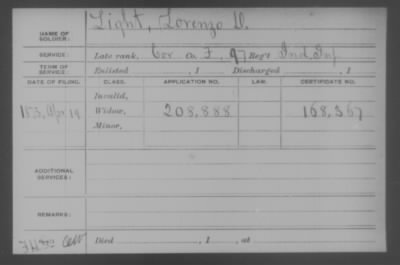 NAME OF SOLDIER: Light, Lorenzo D.
SERVICE: Late rank, Cor Co F, 97 Reg't Ind. Inf
TERM OF SERVICE: Enlisted , 1 Discharged , 1
DATE OF FILING. CLASS. APPLICATION NO. LAW. CERTIFICATE NO.
Invalid,
Apr 19 Widow, 208,888 168,367
Minor,
ADDITIONAL SERVICES:
REMARKS:
Died , 1 , at